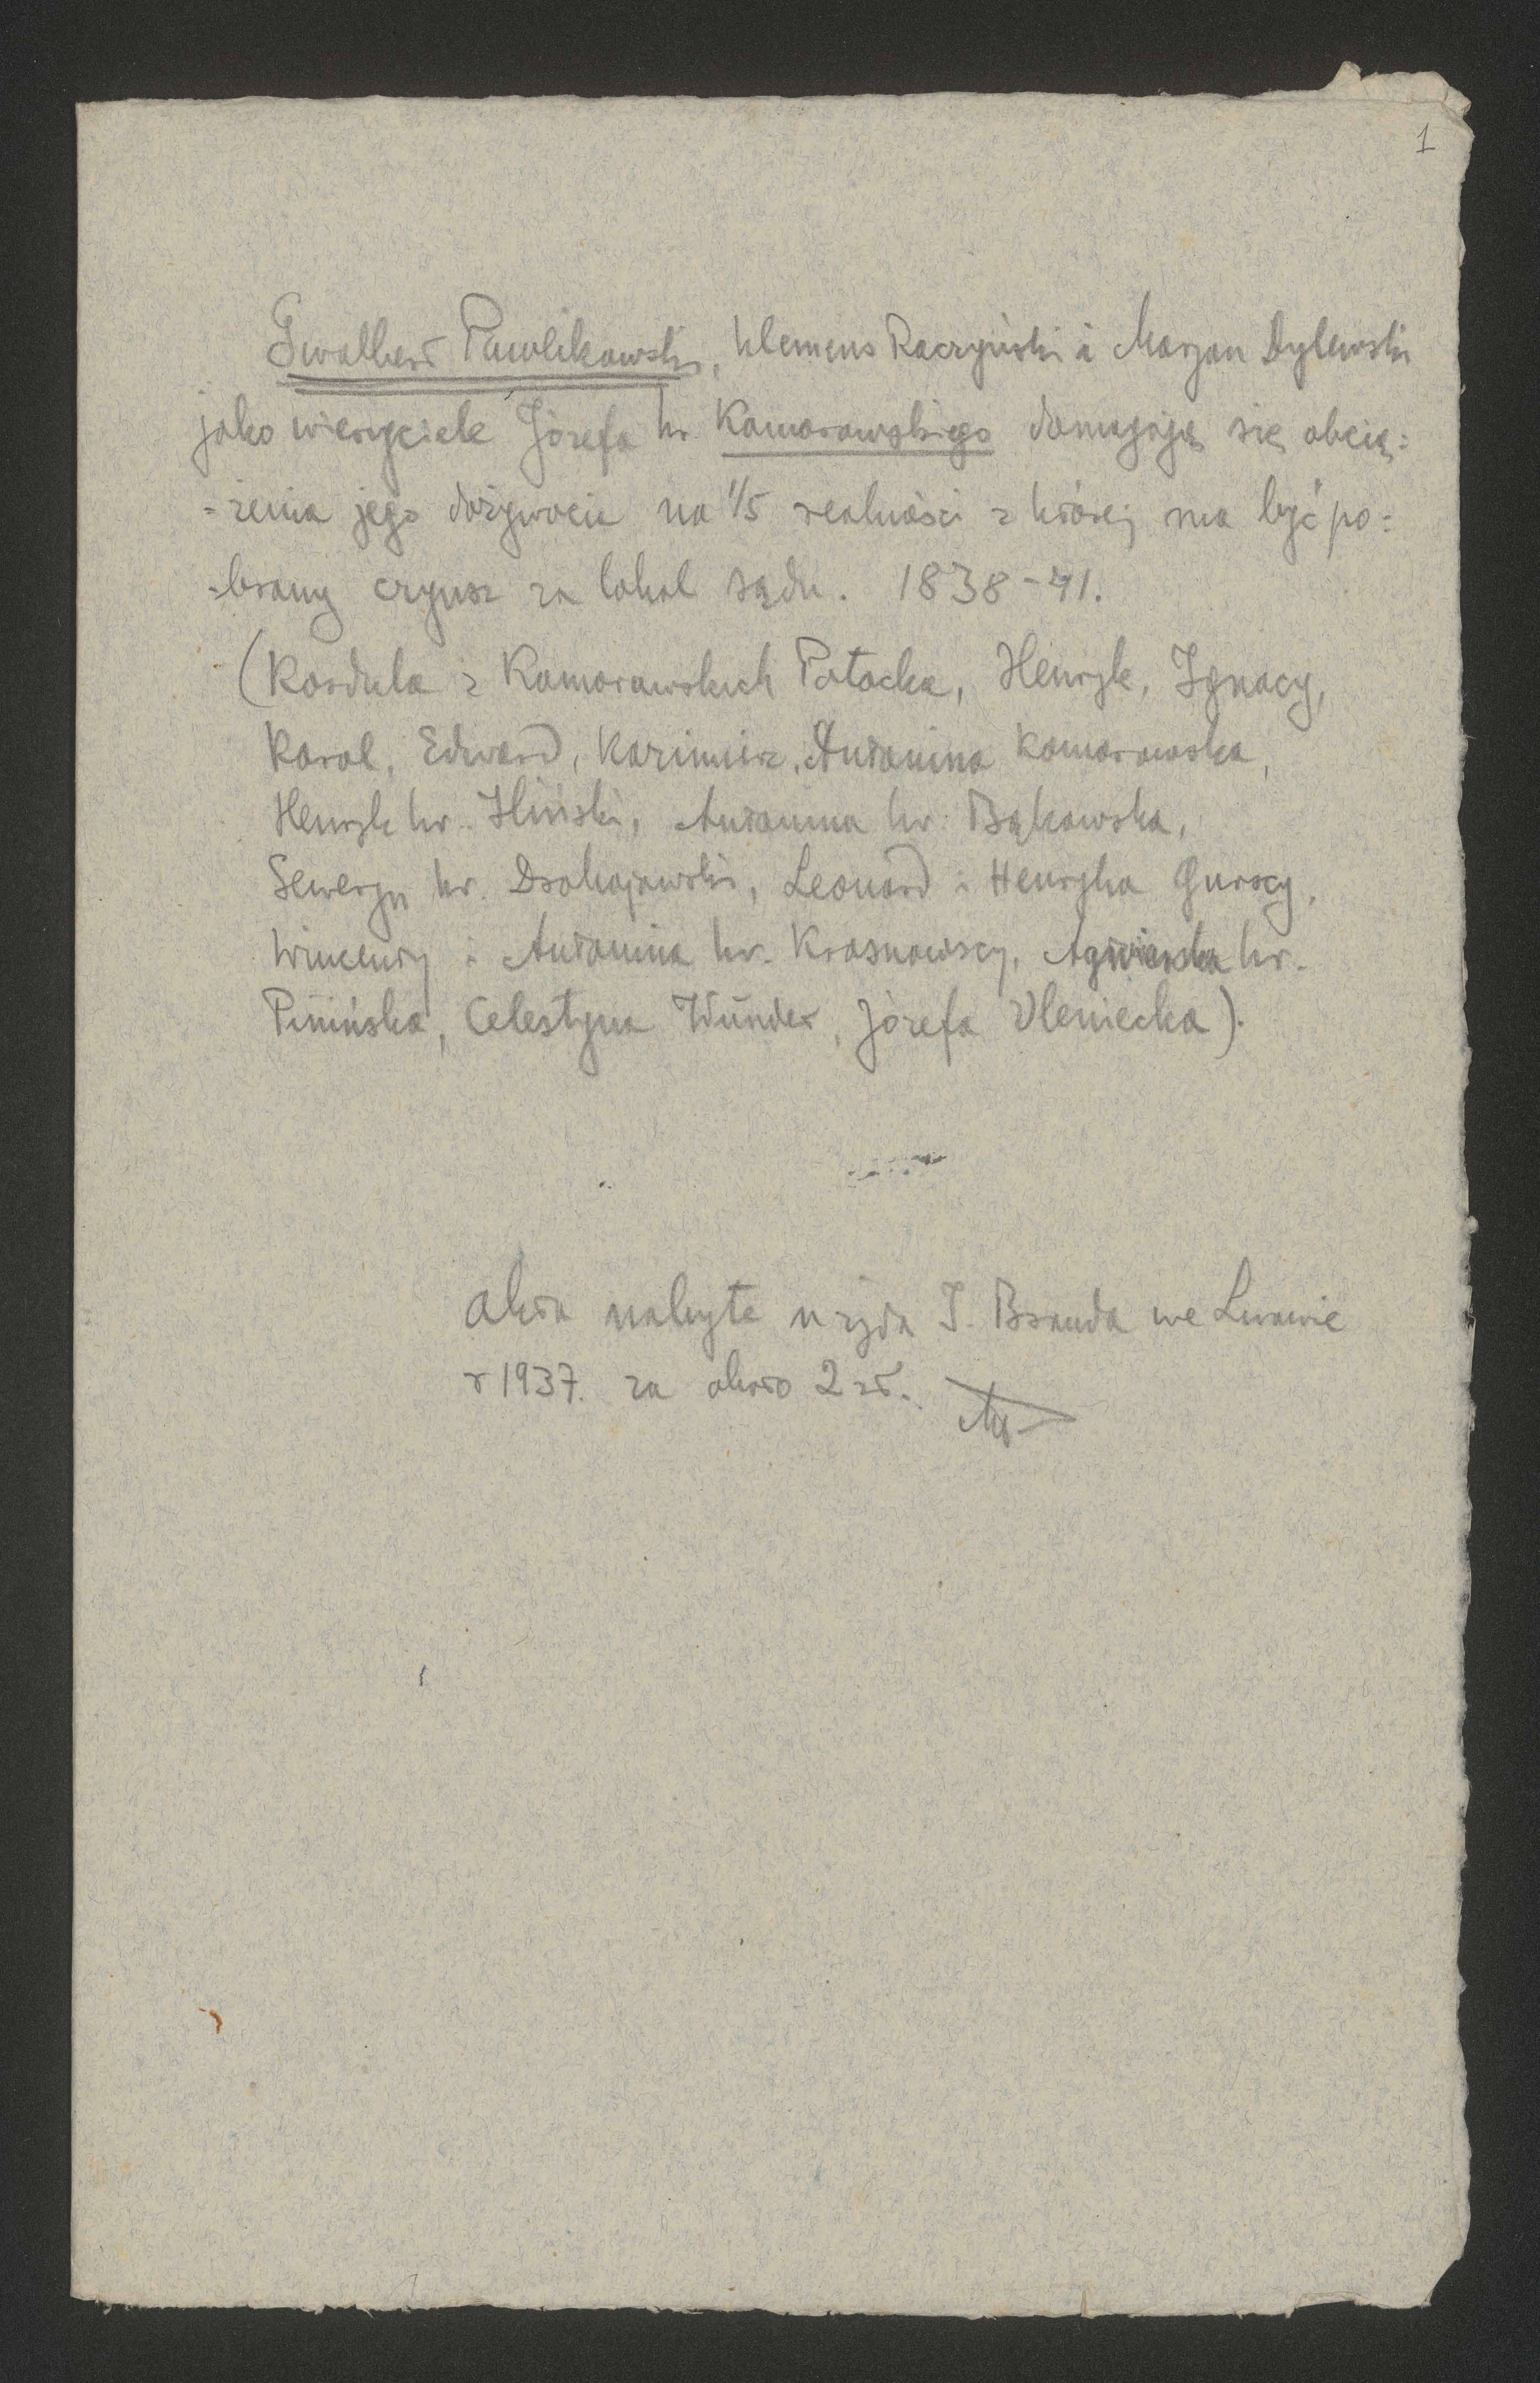 1
Gwalbert Pawlikowski, Klemens Raczyński i Marjan Dylewski
jako wierzyciele Józefa hr. Komorowskiego domagają się obcią=
=żenia jego dożywocia na 1/5 realności z której ma być po=
=brany czynsz za lokal sądu. 1838-41.
(Kordula z Komorowskich Potocka, Henryk, Ignacy,
Karol, Edward, Kazimierz, Antonina Komorowska,
Henryk hr. Iliński, Antonina hr. Bąkowska,
Seweryn hr. Drohojowski, Leonard i Henryka Gurscy,
Wincenty i Antonina hr. Krosnowscy, Agnieszka hr.
Pinińska, Celestyna Wünder, Józefa Uleniecka).
akta nabyte u żyda I. Branda we Lwowie
r 1937. za około 2 zł.